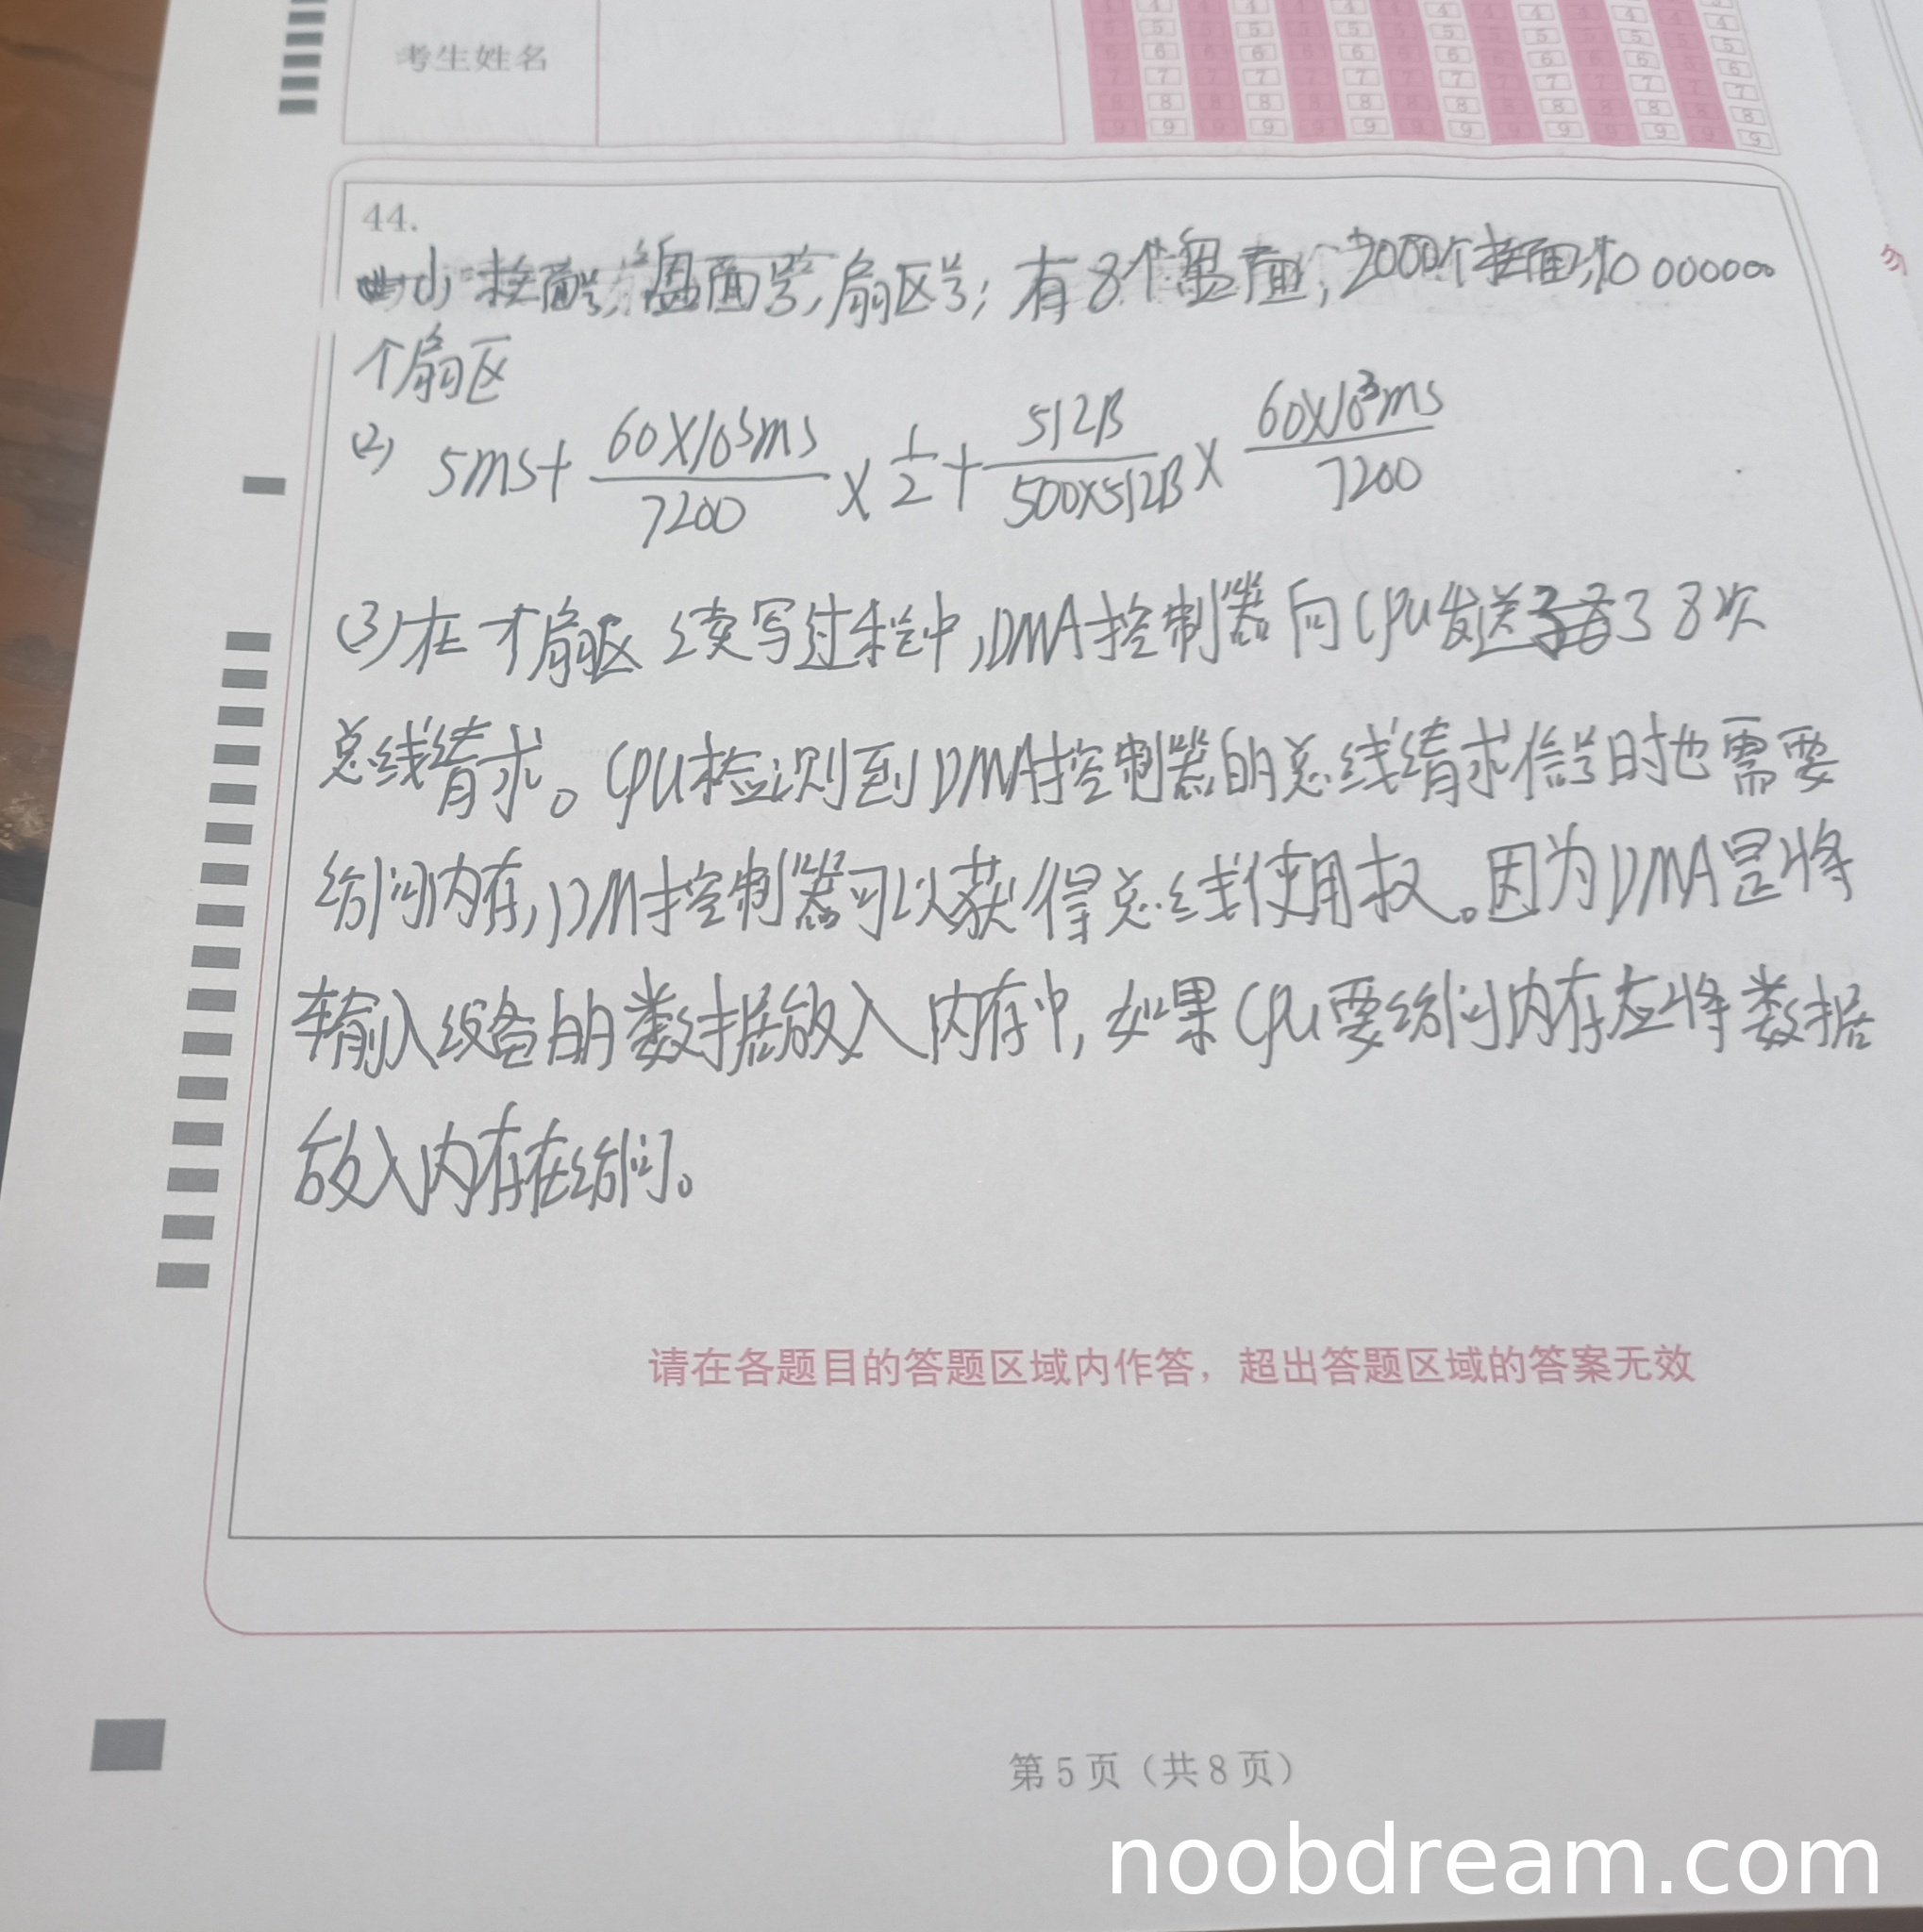 考生姓名
44.
(1) 柱面号,盘面号,扇区号;有8个盘面,20000个柱面,10 000000
个扇区
(2) 5ms+ 60×10³ms/7200 × 1/2 + 512B/500×512B × 60×10³ms/7200
(3)在 扇区 读写过程中,DMA控制器向CPU发送了8次
总线请求。CPU检测到DMA控制器的总线请求信号时也需要
访问内存,DM控制器可以获得总线使用权。因为DMA是将
输入设备的数据放入内存中,如果CPU要访问内存应将数据
放入内存在访问。
请在各题目的答题区域内作答，超出答题区域的答案无效
第5页（共8页）
noobdream.com